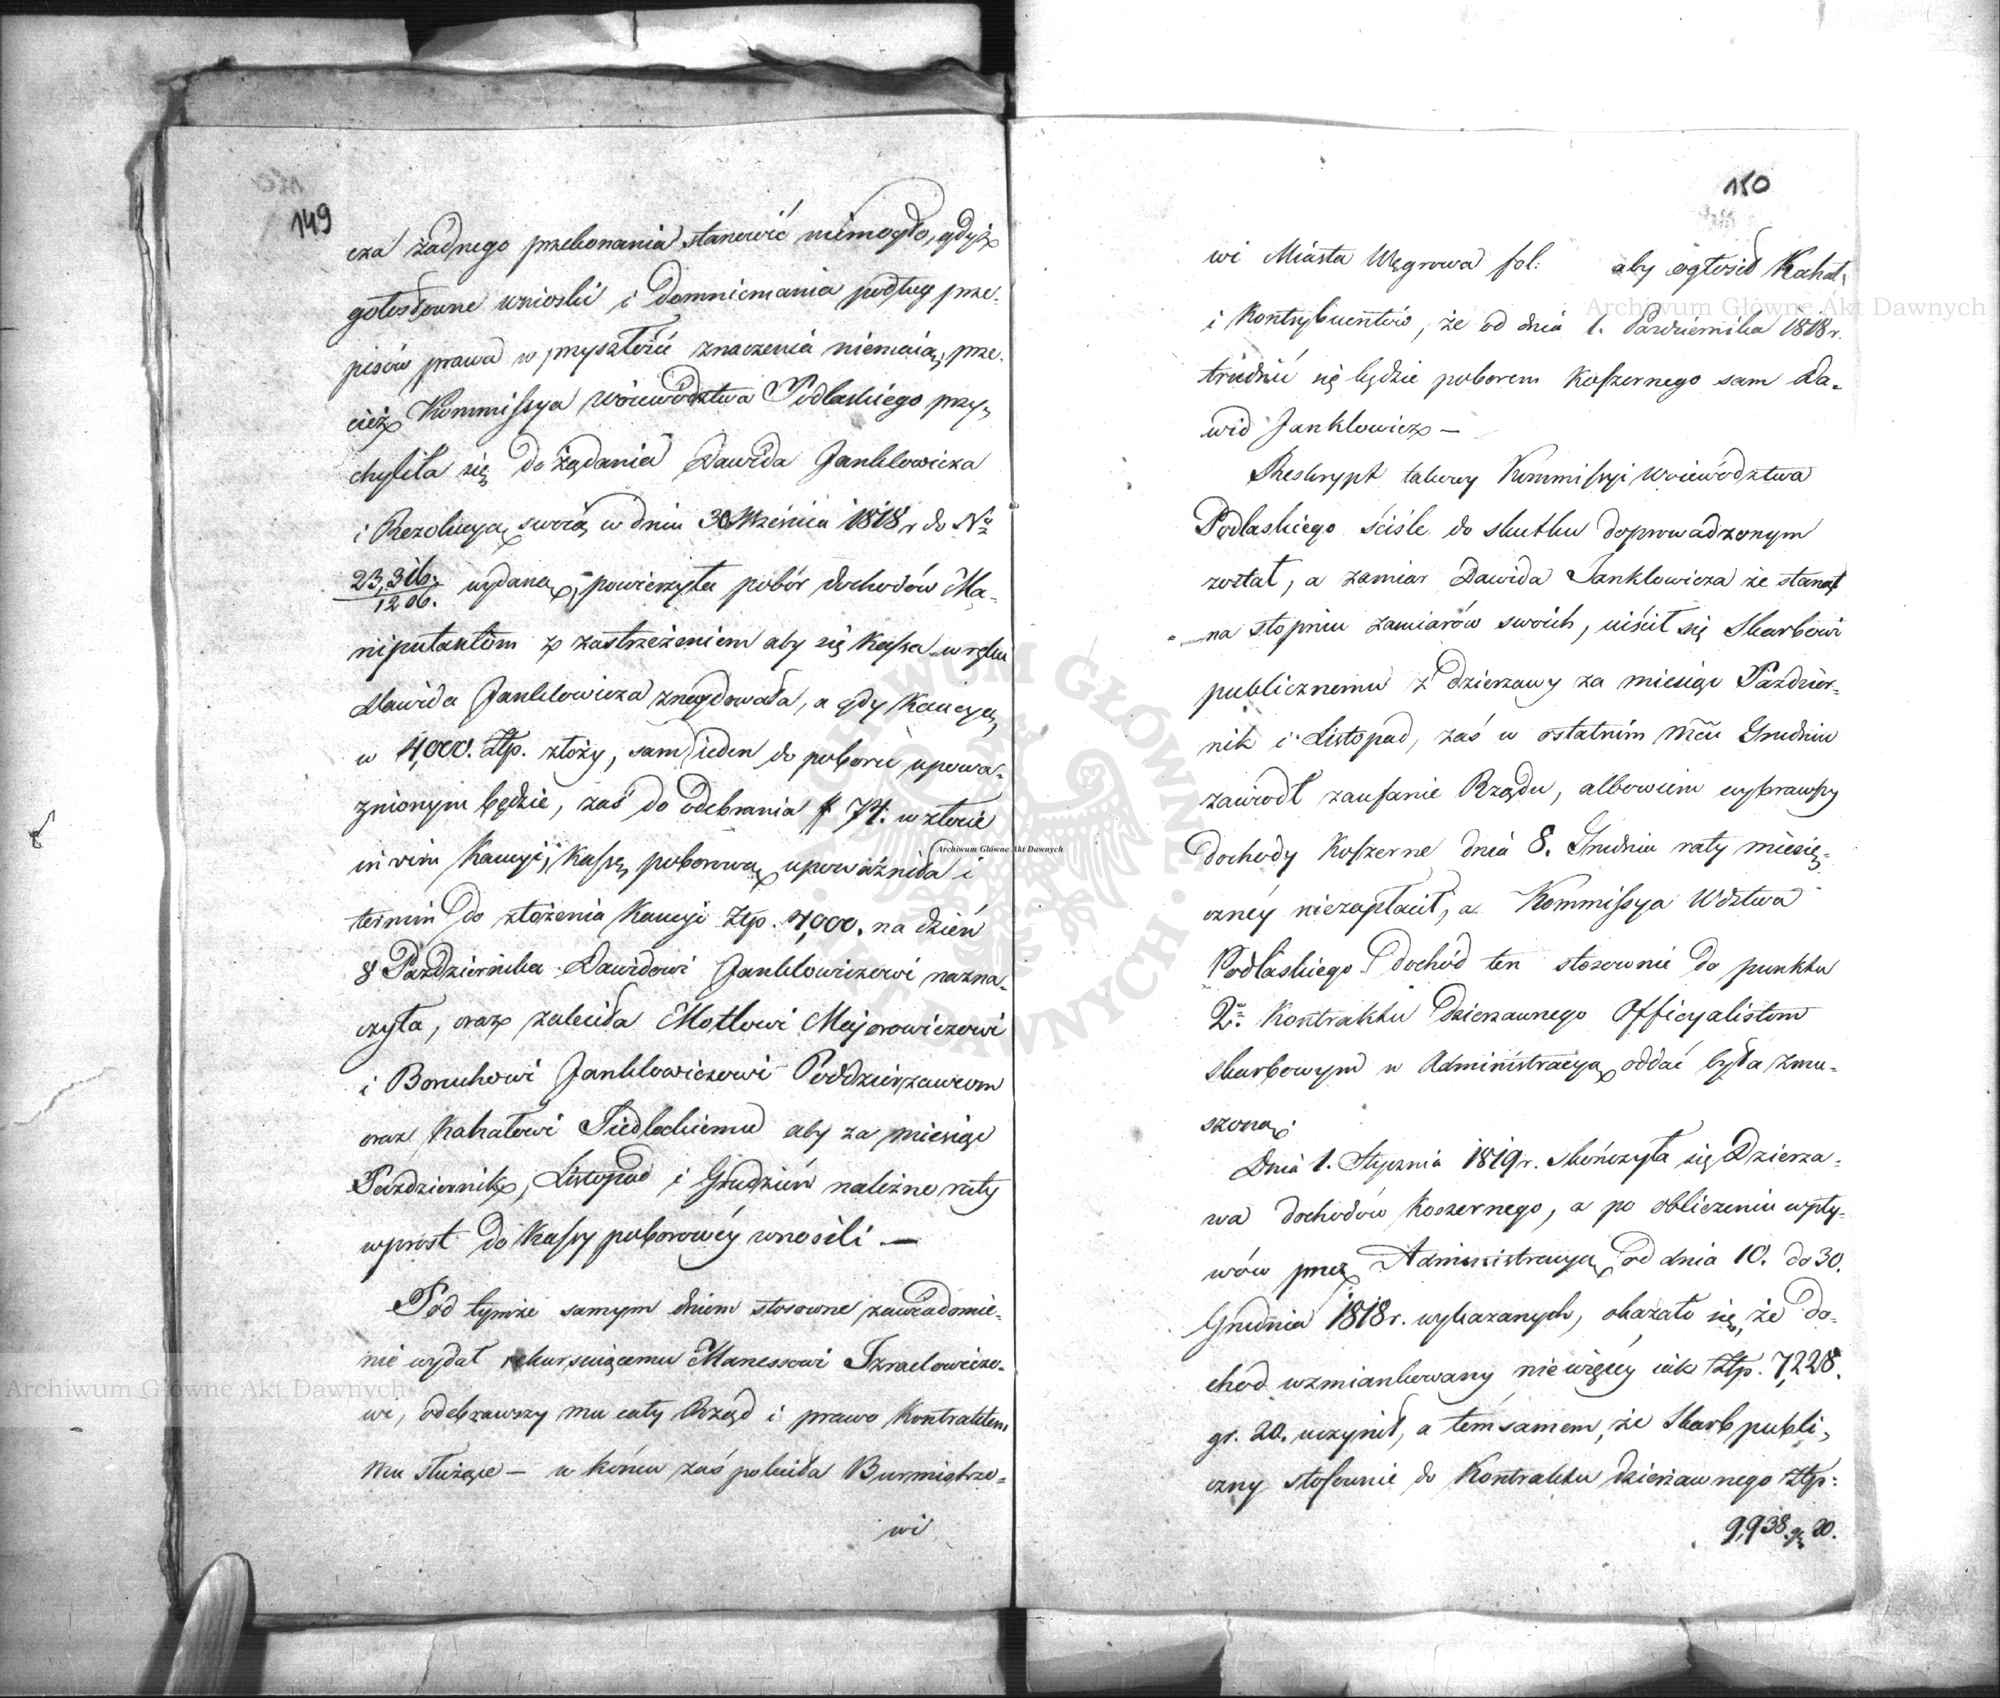 149
cza żadnego przekonania stanowić niemogło, gdyż
gołosłowne wnioski i domniemania podług prze-
pisów prawa w przyszłość znaczenia niemaią, prze-
cięż Kommissya Woiewództwa Podlaskiego przy-
chyliła się do żądania Dawida Janklowicza
i Rezolucyą swoią w dniu 30 Września 1818 r do No
23,316./1206. wydaną, powierzyła pobór dochodów Ma-
nipulantom z zastrzeżeniem aby się Kassa w ręku
Dawida Janklowicza znaydowała, a gdy Kaucyą
w 4,000. Złp. złoży, sam ieden do poboru upowa-
żnionym będzie, zaś do odebrania # 74. w złocie
in vim Kaucyi, Kassę poborową upoważniła i
termin do złożenia Kaucyi Złp. 4,000. na dzień
8 Października Dawidowi Janklowiczowi nazna-
czyła, oraz zaleciła Motlowi Majorowiczowi
i Boruchowi Janklowiczowi Poddzierzawcom
oraz Kahałowi Siedleckiemu aby za miesiąc
Październik, Listopad i Grudzień należne raty
wprost do Kassy poborowéy wnosili —
Pod tymże samym dniem stosowne zawiadomie-
nie wydał rekursuiącemu Manessowi Izraelowiczo-
wi, odebrawszy mu cały Rząd i prawo Kontraktem
mu służące — w końcu zaś poleciła Burmistrzo-
wi
150
wi Miasta Węgrowa fol: aby ogłosił Kahał
i Kontrybuentów, że od dnia 1. Października 1818 r.
trudnić się będzie poborem Koszernego sam Da-
wid Janklowicz —
Reskrypt takowy Kommissyi Woiewództwa
Podlaskiego ściśle do skutku doprowadzonym
został, a zamiar Dawida Janklowicza że stanął
na stopniu zamiarów swoich, uiścił się Skarbowi
publicznemu z dzierzawy za miesiąc Paździer-
nik i Listopad, zaś w ostatnim Mcu Grudniu
zawiodł zaufanie Rządu, albowiem wybrawszy
dochody Koszerne dnia 8. Grudnia raty miesię-
cznéy niezapłacił, a Kommissya Wdztwa
Podlaskiego dochód ten stosownie do punktu
2. Kontraktu dzierzawnego Officyalistom
skarbowym w Administracyą oddać była zmu-
szoną.
Dnia 1. Stycznia 1819 r. skończyła się Dzierza-
wa dochodów Koszernego, a po obliczeniu wpły-
wów przez Administracyą od dnia 10. do 30.
Grudnia 1818 r. wykazanych, okazało się, że do-
chod wzmiankowany niewięcéy iak Złp. 7,228.
gr. 20. uczynił, a tém samem, że Skarb publi-
czny stosownie do Kontraktu dzierżawnego Złp:
9,938. gr 20.
Archiwum Główne Akt Dawnych
Archiwum Główne Akt Dawnych
Archiwum Główne Akt Dawnych
ARCHIWUM GŁÓWNE AKT DAWNYCH